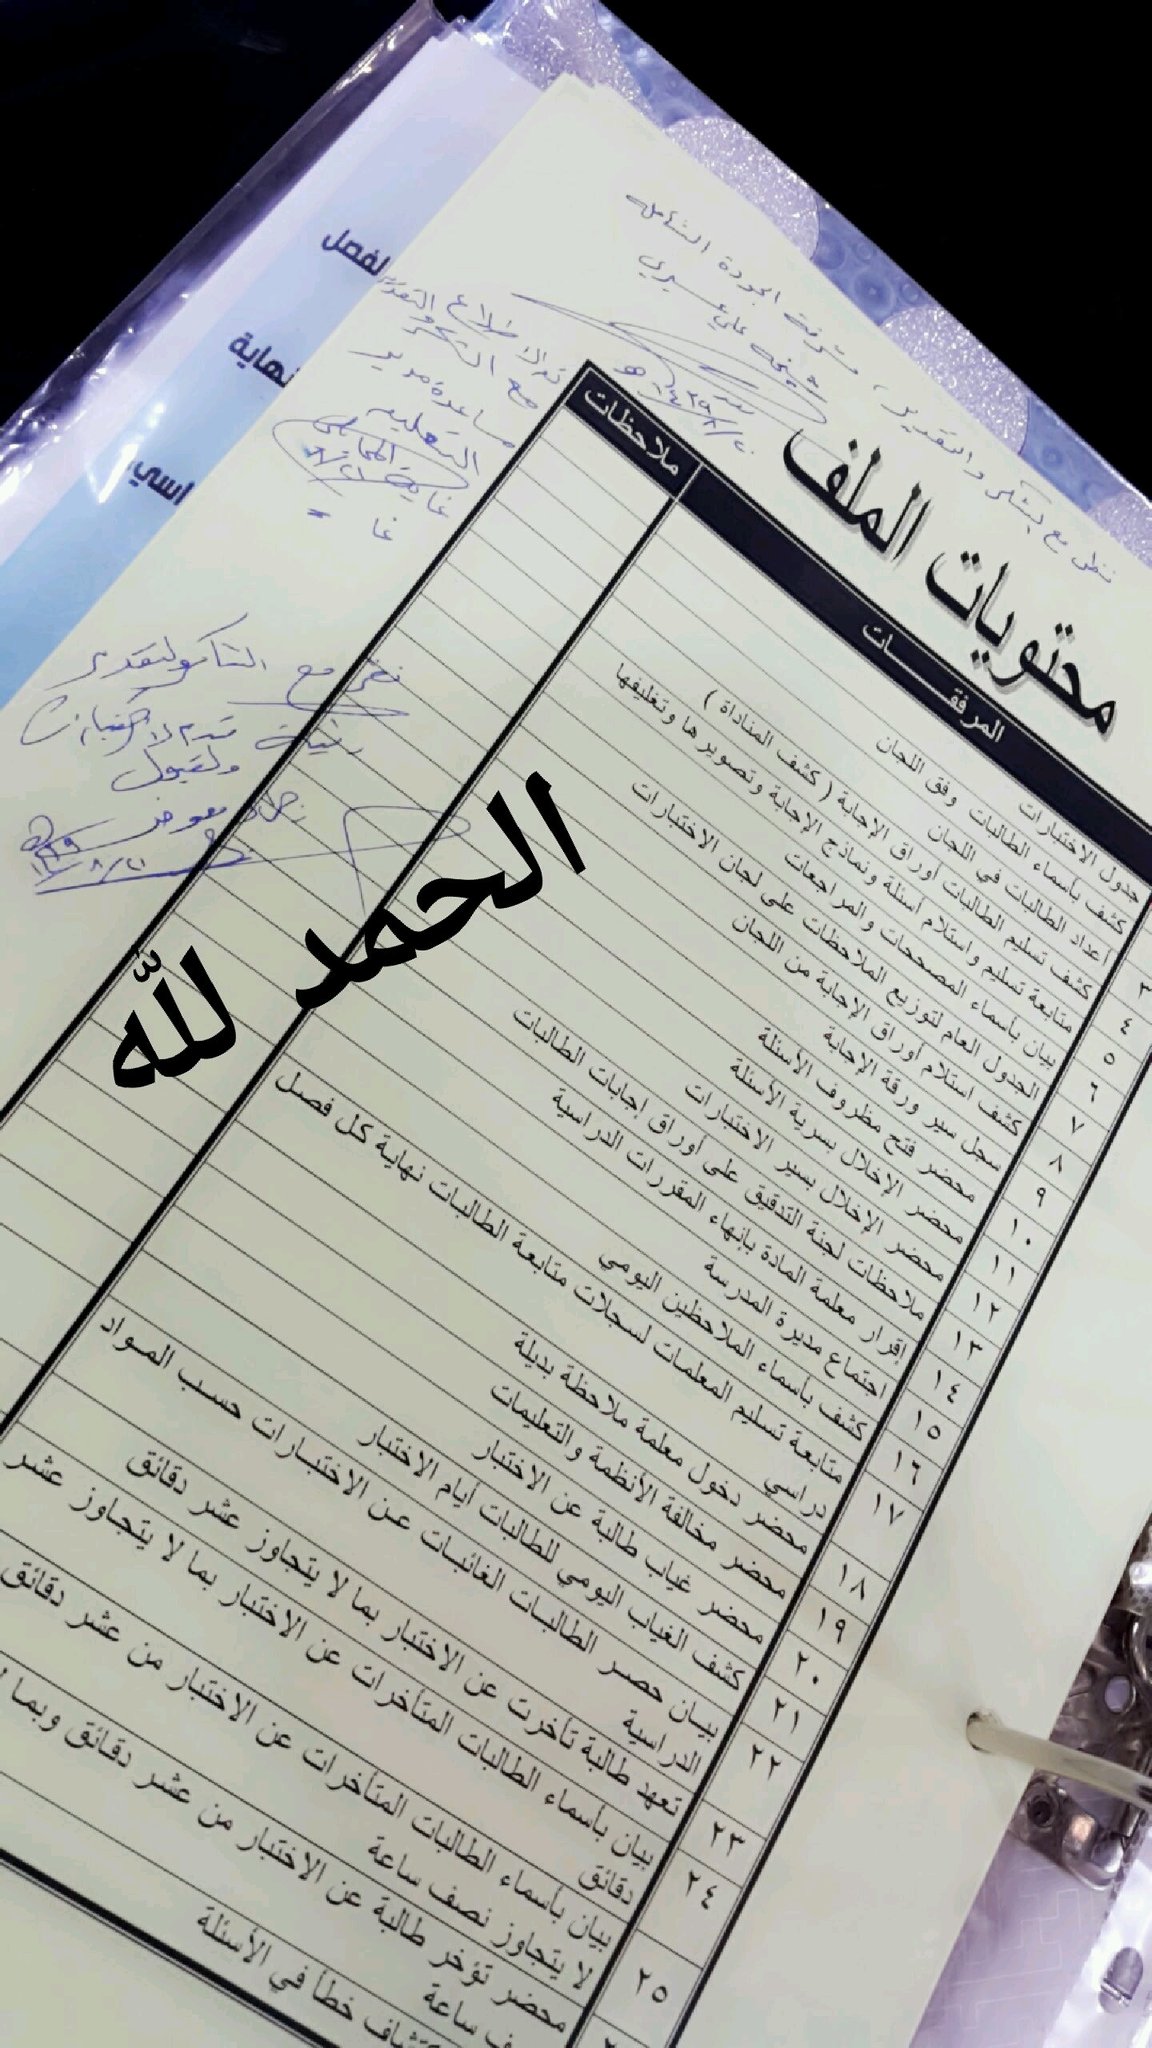 ننظر مع الشكر والتقدير، مشرفة الجودة الشاملة
علي عسيري
تم الاطلاع
مع الشكر
مساعدة مدير
التعليم
نظر مع الشكر والتقدير
لفصل
نهاية
اسي
محتويات الملف
المرفقات
ملاحظات
جدول الاختبارات
كشف بأسماء الطالبات وفق اللجان
٣ أعداد الطالبات في اللجان
٤ كشف تسليم الطالبات أوراق الإجابة ( كشف المناداة )
٥ متابعة تسليم واستلام أسئلة ونماذج الإجابة وتصويرها وتغليفها
٦ بيان بأسماء المصححات والمراجعات
٧ الجدول العام لتوزيع الملاحظات على لجان الاختبارات
٨ كشف استلام أوراق الإجابة من اللجان
٩ سجل سير ورقة الإجابة
١٠ محضر فتح مظروف الأسئلة
١١ محضر الإخلال بسرية الأسئلة
١٢ محضر الإخلال بسير الاختبارات
١٣ ملاحظات لجنة التدقيق على أوراق إجابات الطالبات
١٤ إقرار معلمة المادة بإنهاء المقررات الدراسية
١٥ اجتماع مديرة المدرسة
١٦ كشف بأسماء الملاحظين اليومي
١٧ متابعة تسليم المعلمات لسجلات متابعة الطالبات نهاية كل فصل
دراسي
١٨ محضر دخول معلمة ملاحظة بديلة
١٩ محضر مخالفة الأنظمة والتعليمات
٢٠ محضر غياب طالبة عن الاختبار
٢١ كشف الغياب اليومي للطالبات أيام الاختبار
٢٢ بيان حصر الطالبات الغائبات عن الاختبارات حسب المواد
الدراسية
٢٣ تعهد طالبة تأخرت عن الاختبار بما لا يتجاوز عشر دقائق
٢٤ بيان بأسماء الطالبات المتأخرات عن الاختبار بما لا يتجاوز عشر
دقائق
٢٥ بيان بأسماء الطالبات المتأخرات عن الاختبار من عشر دقائق
لا يتجاوز نصف ساعة
محضر تؤخر طالبة عن الاختبار من عشر دقائق وبما
ساعة
خطأ في الأسئلة
الحمد لله